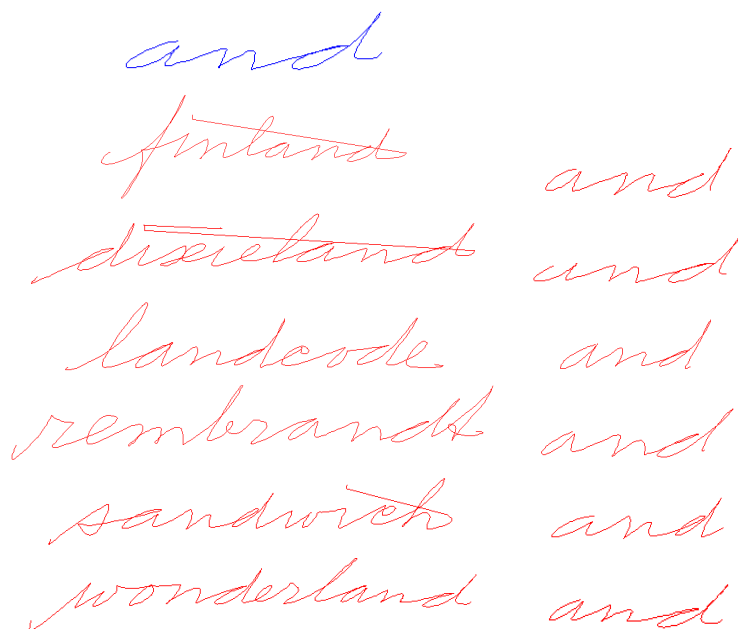 and
finland and
dixieland and
landcode and
rembrandt and
sandwich and
wonderland and